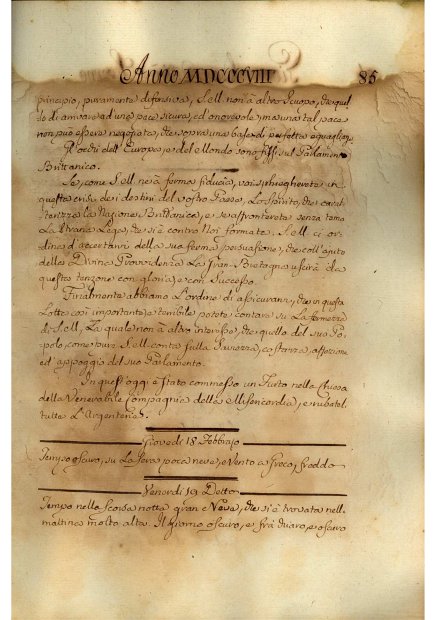 Anno MDCCCVIII 85
principio, puramente difensiva, S.e M. non à altro Scuopo, che quel-
lo di arrivare ad una pace sicura, ed onorevole, ma una tal pace
non può essere negoziata, che sopra una base di perfetta eguaglian
L'occhi dell'Europa, e del Mondo sono fissi sul Parlamento
Brittanico.
Se, come S.e M. ne à ferma fiducia, voi spiegherete in
questa crise dei destini del vostro Paese, lo Spirito, che carat-
terizza la Nazione Brittanica, e se affronterete senza tema
la strana Lega, che si è contro Noi formata. S.e M. ci or-
dina d'accertarvi della sua ferma persuasione, che coll'ajuto
della Divina Provvidenza la Gran-Bretagna uscirà da
questa tenzone con gloria, e con Successo
Finalmente abbiamo l'ordine di assicurarvi, che in questa
Lotta così importante, e terribile potete contare su la fermezza
di S.e M. la quale non à altro interesse, che quello del suo Po-
polo, come pure S.e M. conta sulla Saviezza, costanza, affezione
ed appoggio del suo Parlamento.
In quest'oggi è stato commesso un Furto nella Chiesa
della Venerabile Compagnia della Misericordia, e rubato
tutta l'Argenteria.
Giovedì 18 Febbrajo
Tempo oscuro, su la sera poca neve, e Vento a freco, freddo
Venerdì 19 Detto
Tempo nella scorsa notta gran e Neve, che si è trovata nell-
mattina molto alta. Il giorno oscuro, e frà chiaro, e oscuro